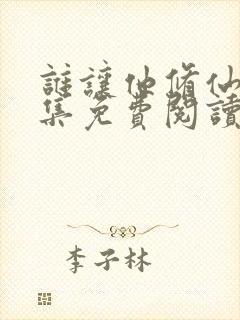 誰讓他修仙
集免費閱讀
李子林